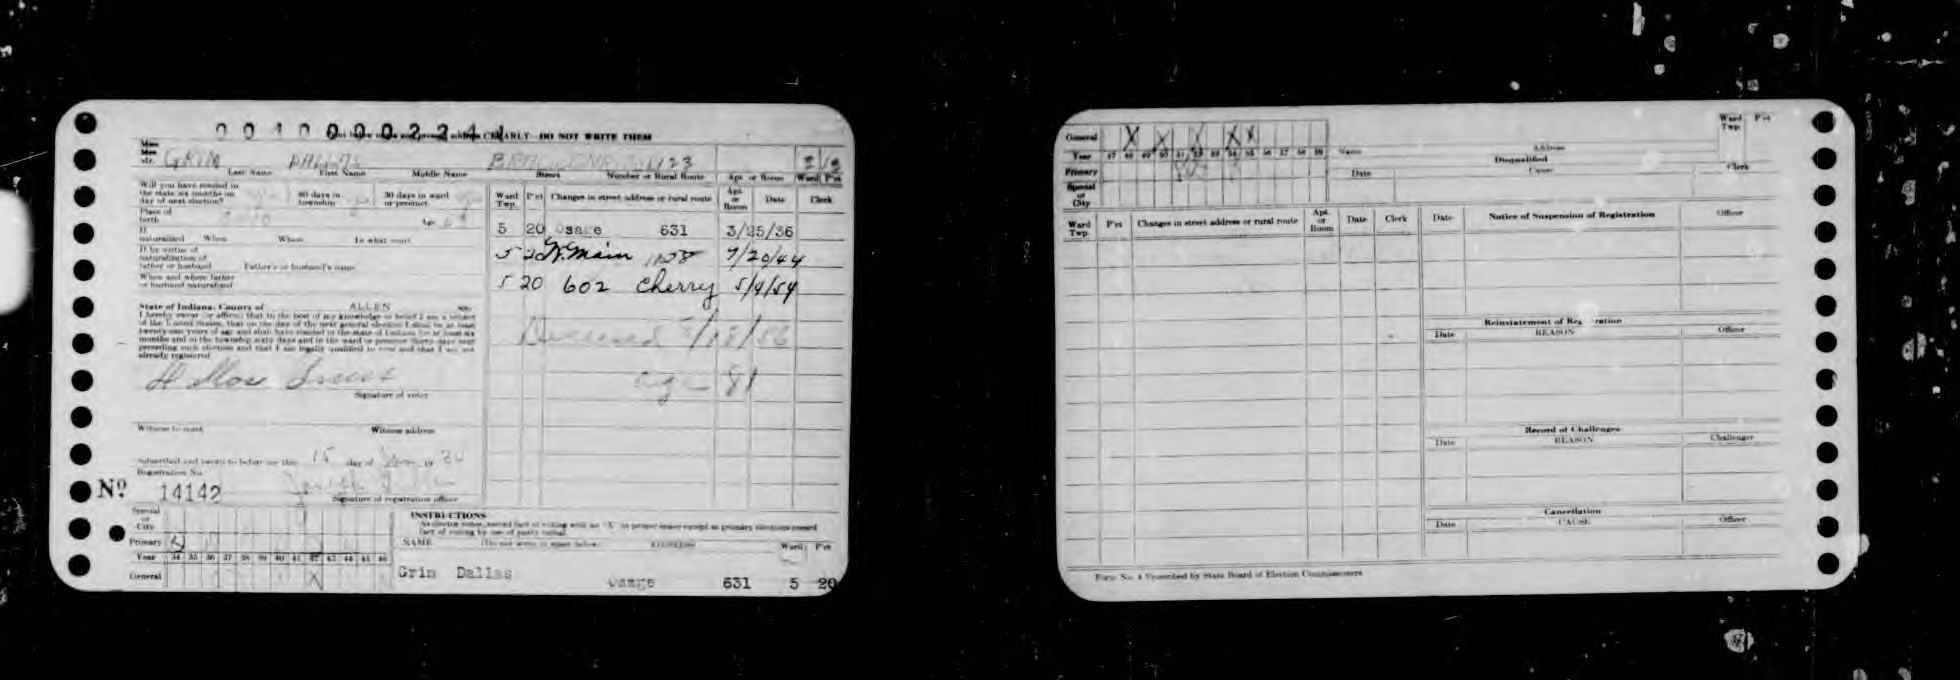 00100002241
CLEARLY DO NOT WRITE THEM
Miss
Mrs.
Mr. GRIM DALLAS 1123
Last Name First Name Middle Name Street Number or Rural Route Apt. or Room Ward P'ct
Will you have resided in
the state six months on
day of next election?
60 days in
township
30 days in ward
or precinct
Place of
birth
Age
If
naturalized When Where In what court
If by virtue of
naturalization of
father or husband Father's or husband's name
When and where father
or husband naturalized
State of Indiana, County of ALLEN
I hereby swear (or affirm) that to the best of my knowledge or belief I am a citizen
of the United States, that on the day of the next general election I shall be at least
twenty-one years of age and shall have resided in the state of Indiana for at least six
months and in the township sixty days and in the ward or precinct thirty days next
preceding such election and that I am legally qualified to vote and that I am not
already registered
Signature of voter
Witness to mark Witness address
Subscribed and sworn to before me this 15 day of
Registration No.
Nº 14142
Signature of registration officer
Ward Twp. P'ct Changes in street address or rural route Apt. or Room Date Clerk
5 20 Osage 631 3/25/36
5 20 W. Main 7/20/44
5 20 602 Cherry 5/4/54
Deceased
age 81
Special
or
City
Primary
Year 34 35 36 37 38 39 40 41 42 43 44 45 46
General X
INSTRUCTIONS
NAME (Do not write in space below) ADDRESS Ward P'ct
Grim Dallas Osage 631 5 20
General X X X X X
Year 47 48 49 50 51 52 53 54 55 56 57 58 59
Primary
Special
or
City
Name Address
Ward
Twp. P'ct
Disqualified
Date Cause Clerk
Ward
Twp. P'ct Changes in street address or rural route Apt.
or
Room Date Clerk
Date Notice of Suspension of Registration Officer
Reinstatement of Registration
Date REASON Officer
Record of Challenges
Date REASON Challenger
Cancellation
Date CAUSE Officer
Form No. 4 Prescribed by State Board of Election Commissioners